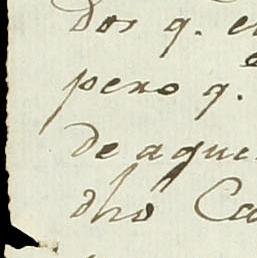 dos q. e
pero q.
de aque
dho Ca